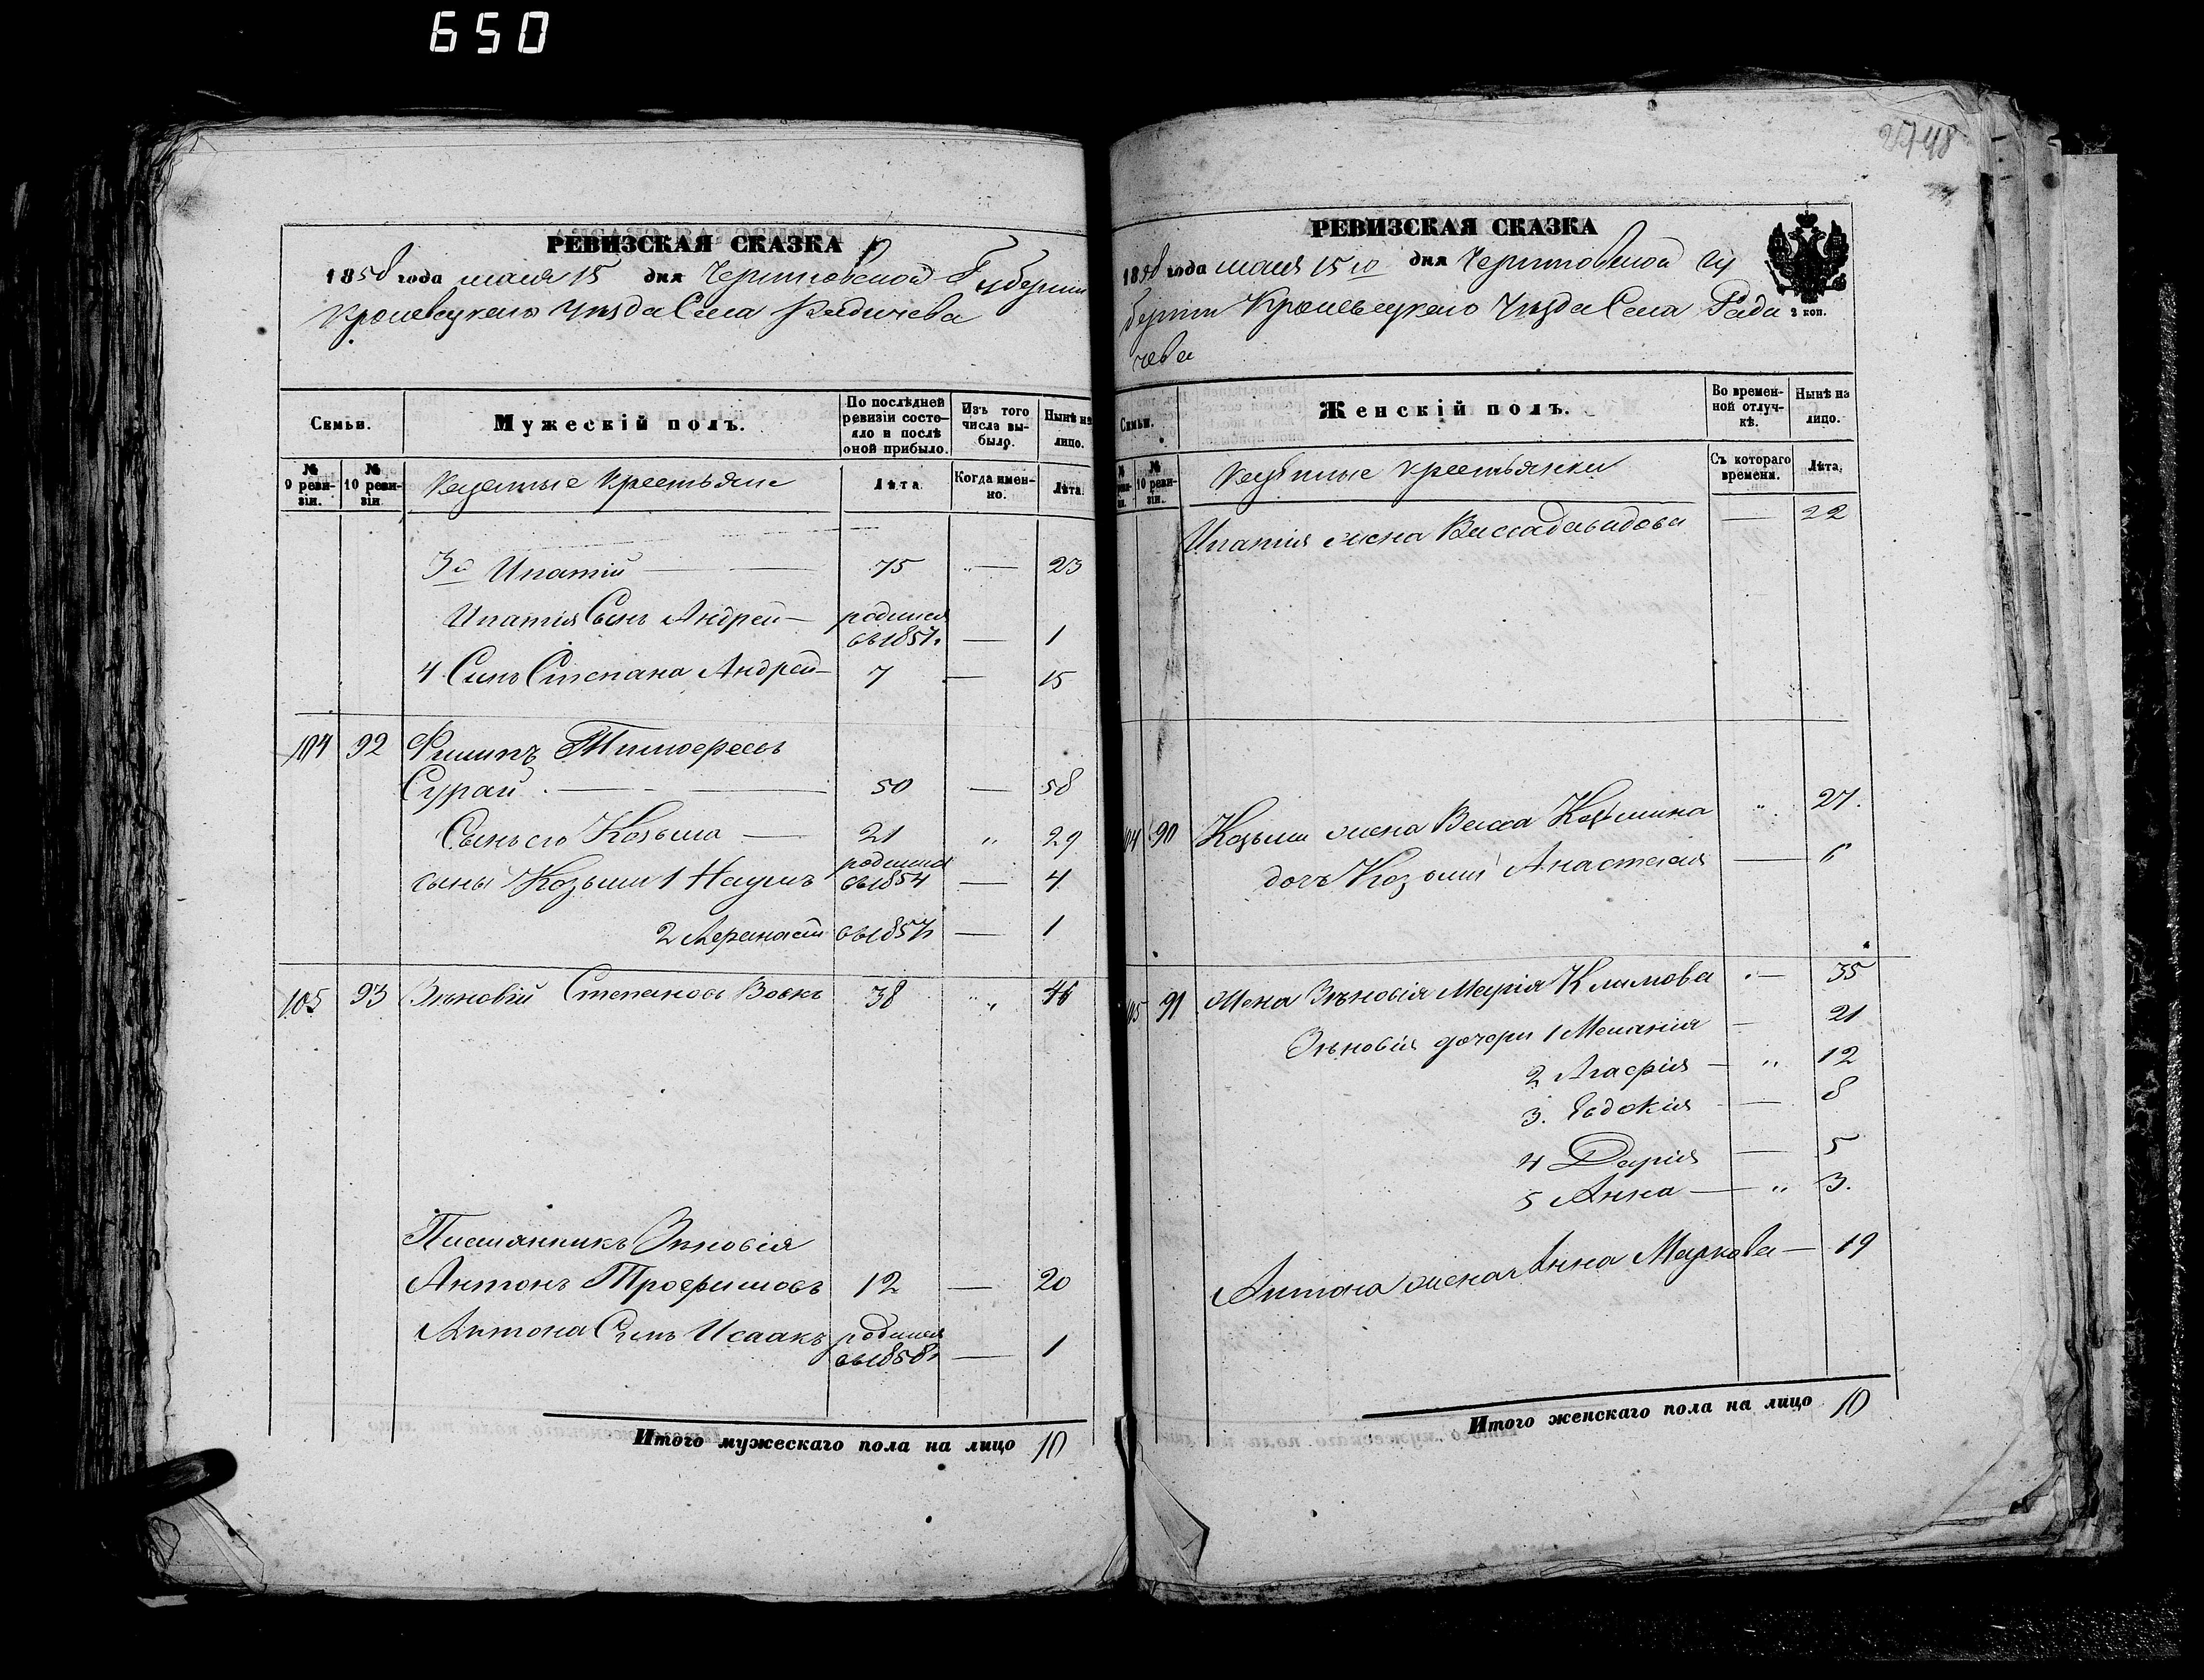 650
РЕВИЗСКАЯ СКАЗКА
1858 года маия 15 дня Черниговской Губерніи
Кролевецкаго Уѣзда Села Радичева
Семьи.
Мужескій полъ.
По послѣдней ревизіи состояло и послѣ оной прибыло.
Изъ того числа выбыло.
Нынѣ на лицо.
№ 9 ревизіи.
№ 10 ревизіи.
Казенные крестьяне
Лѣта.
Когда именно.
Лѣта.
3й Ипатій — 15 — 23
Ипатія Сынъ Андрей — родился въ 1857г. — 1
4 Сынъ Степана Андрей — 7 — 15
104 92 Филипъ Тимофеевъ
Сурай — 50 — 58
Сынъ его Козьма — 21 „ 29
сыны Козьми 1 Наумъ родился въ 1854 — 4
2 Афанасій въ 1857г — 1
105 93 Зѣновій Степановъ Вовкъ 38 „ 46
Племянникъ Зѣновія
Антонъ Трофимовъ 12 — 20
Антона Сынъ Исаакъ родился въ 1858г — 1
Итого мужескаго пола на лицо 10
2748
РЕВИЗСКАЯ СКАЗКА
1858 года маия 15 го дня Черниговской Гу
берніи Кролевецкаго Уѣзда Села Ради
чева
2 коп.
Семьи.
Женскій полъ.
Во временной отлучкѣ.
Нынѣ на лицо.
№ 10 ревизіи.
Казенные крестьянки
Съ котораго времени.
Лѣта.
Ипатія жена Васса Давидова — 22
104 90 Козьми жена Васса Козьмина „ 27.
дочь Козьми Анастасия — 6
105 91 Жена Зѣновія Марія Климова — 35
Зѣновія дочери 1 Меланія — 21
2 Агафія — „ 12
3. Евдокія — 8
4 Дарія — 5
5 Анна — „ 3.
Антона жена Анна Маркова — 19
Итого женскаго пола на лицо 10